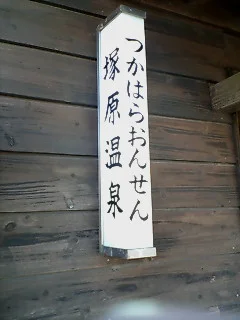 つかはらおんせん
塚原温泉